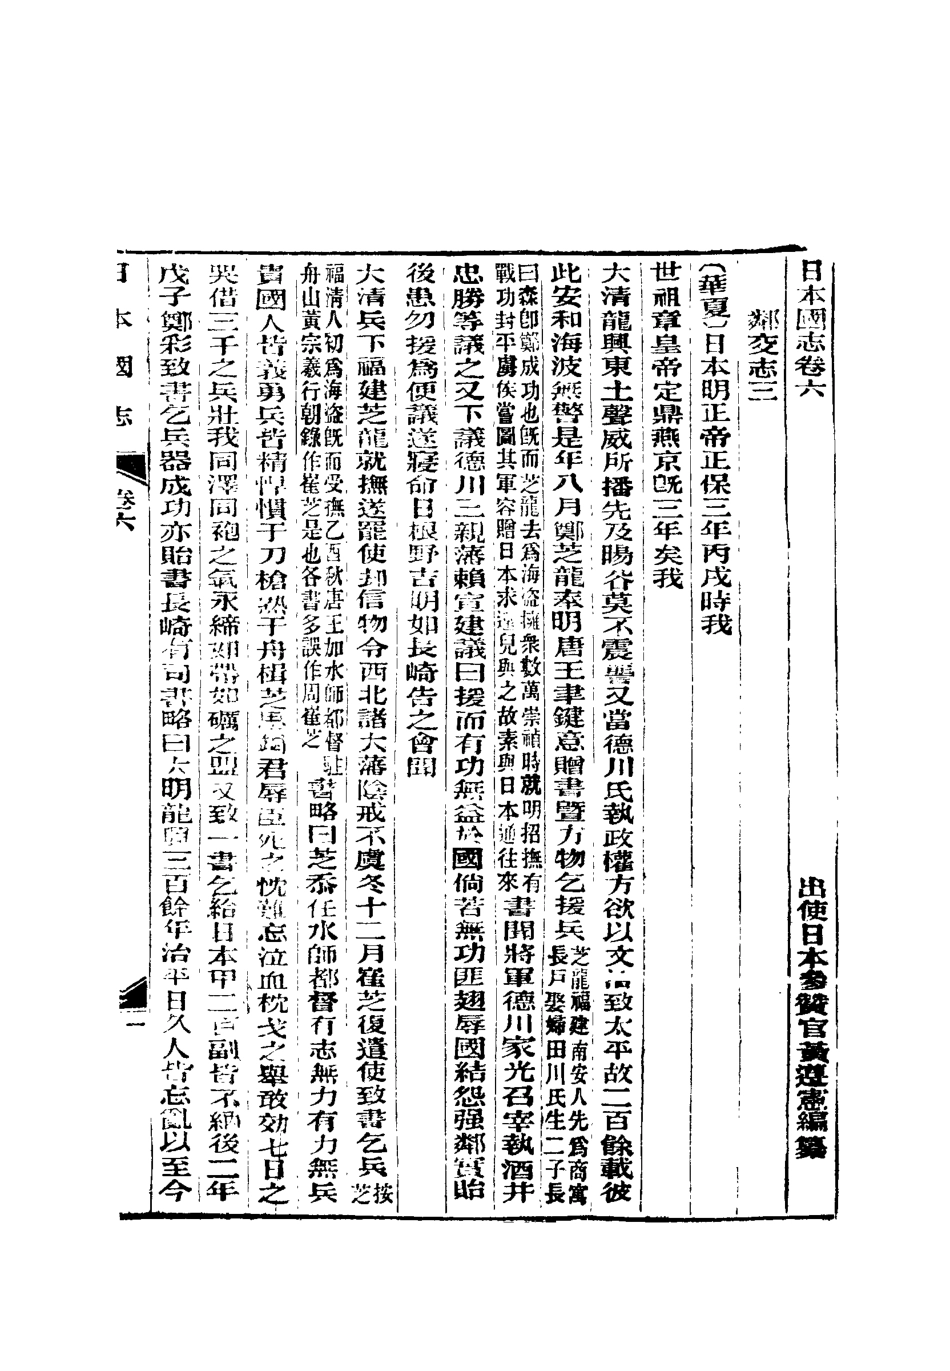 日本國志卷六
出使日本參贊官黃遵憲編纂
鄰交志三
(華夏)日本明正帝正保三年丙戌時我
世祖章皇帝定鼎燕京旣三年矣我
大清龍興東土聲威所播先及暘谷莫不震讋又當德川氏執政權方欲以文治致太平故二百餘載彼
此安和海波無警是年八月鄭芝龍奉明唐王聿鍵意贈書暨方物乞援兵
芝龍福建南安人先爲商寓
長戶娶婦田川氏生二子長
曰森卽鄭成功也旣而芝龍去爲海盜擁衆數萬崇禎時就明招撫有
戰功封平虜侯嘗圖其軍容贈日本求還兒與之故素與日本通往來
書聞將軍德川家光召宰執酒井
忠勝等議之又下議德川三親藩賴宣建議曰援而有功無益於國倘若無功匪翅辱國結怨强鄰實貽
後患勿援爲便議遂寢命日根野吉明如長崎告之會聞
大清兵下福建芝龍就撫遂罷使却信物令西北諸大藩陰戒不虞冬十二月崔芝復遣使致書乞兵
按
芝
福淸人初爲海盜旣而受撫乙酉秋唐王加水師都督駐
舟山黃宗羲行朝錄作崔芝是也各書多誤作周崔芝
書略曰芝忝任水師都督有志無力有力無兵
貴國人皆義勇兵皆精悍慣于刀槍熟于舟楫芝 君辱臣死之忱難忘泣血枕戈之舉敢効七日之
哭借三千之兵壯我同澤同袍之氣永締如帶如礪之盟又致一書乞給日本甲二百副皆不納後二年
戊子鄭彩致書乞兵器成功亦貽書長崎有司書略曰大明龍興三百餘年治平日久人皆忘亂以至今
日本國志
卷六
一